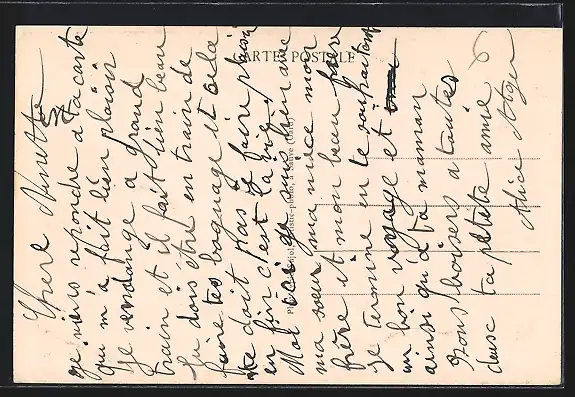 CARTE POSTALE
Chere Ninette
je viens repondre a ta carte
qui m'a fait bien plaisir
Je vendange a grand
train et il fait bien beau
tu dois être en train de
faire tes baguage et cela
te doit pas te faire plaisir
en fin c'est la vie,
Moi ici je suis bien avec
ma soeur ma niece mon
frère et mon beau frère
je termine en te souhaitant
un bon voyage et
ainsi qu'a ta maman
Bons baisers a toutes
deux ta petite amie
Alice